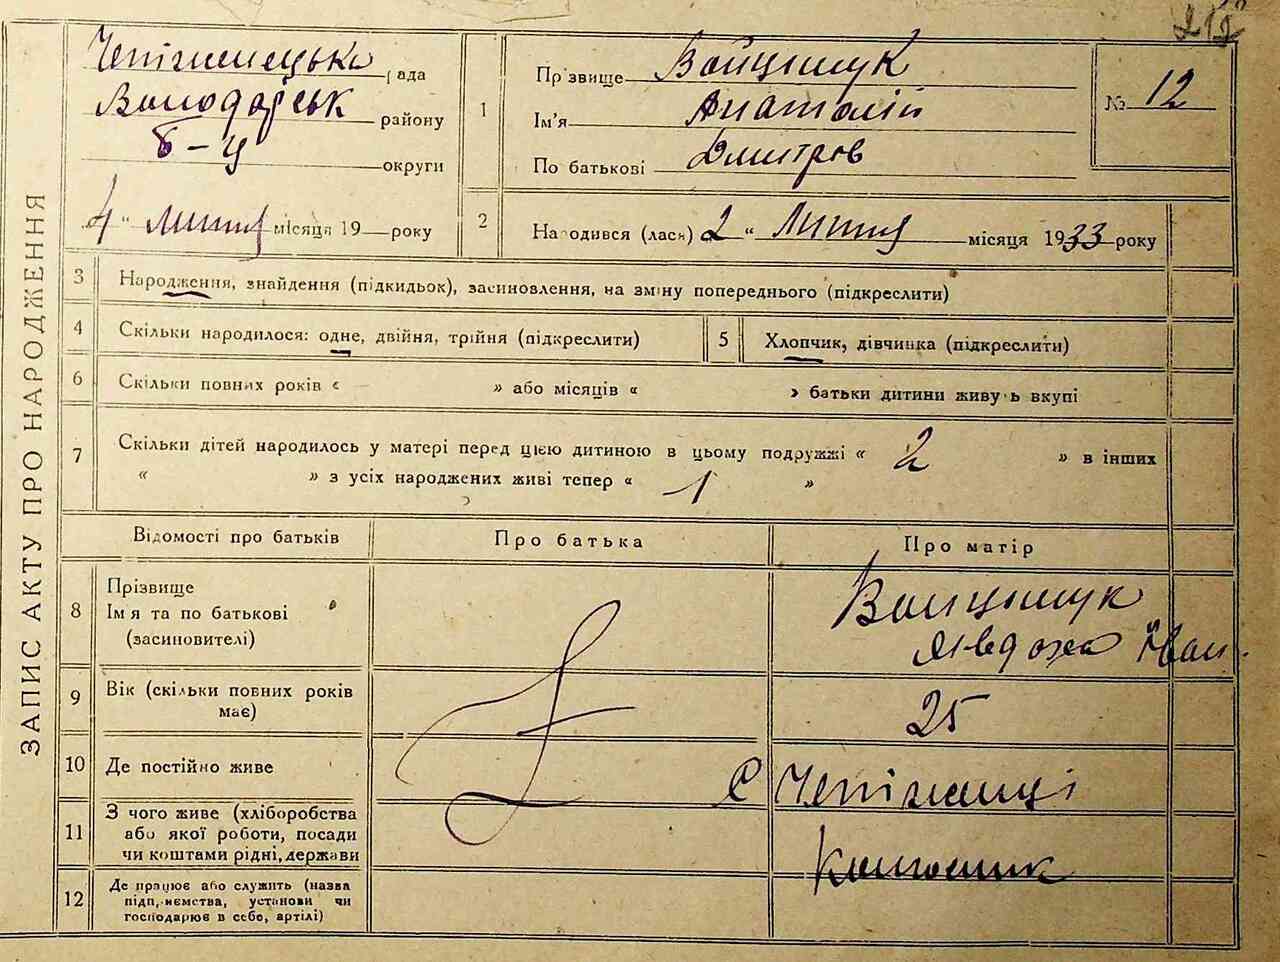 212
ЗАПИС АКТУ ПРО НАРОДЖЕННЯ
Чепіжинецька рада
Володарськ району
Б-Ц округи
4 " Липня місяця 19 року
1
Прізвище Войцишук
Ім'я Анатолій
По батькові Дмитров
№ 12
2
Народився (лася) 2 " Липня місяця 1933 року
3 Народження, знайдення (підкидьок), засиновлення, на зміну попереднього (підкреслити)
4 Скільки народилося: одне, двійня, трійня (підкреслити)
5 Хлопчик, дівчинка (підкреслити)
6 Скільки повних років « » або місяців « » батьки дитини живуть вкупі
7 Скільки дітей народилось у матері перед цією дитиною в цьому подружжі « 2 » в інших
« » з усіх народжених живі тепер « 1 »
Відомості про батьків Про батька Про матір
8 Прізвище
Імя та по батькові
(засиновителі)
Войцишук
Явдоха Іван.
9 Вік (скільки повних років
має)
25
10 Де постійно живе
с Чепіжинці
11 З чого живе (хліборобства
або якої роботи, посади
чи коштами рідні, держави
колгосник
12 Де працює або служить (назва
підприємства, установи чи
господарює в себе, артілі)